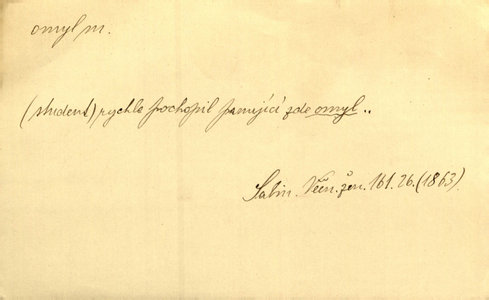 omyl m.
(student) rychle pochopil panující zde omyl..
Sabin. Věčn. žen. 161. 26. (1863).